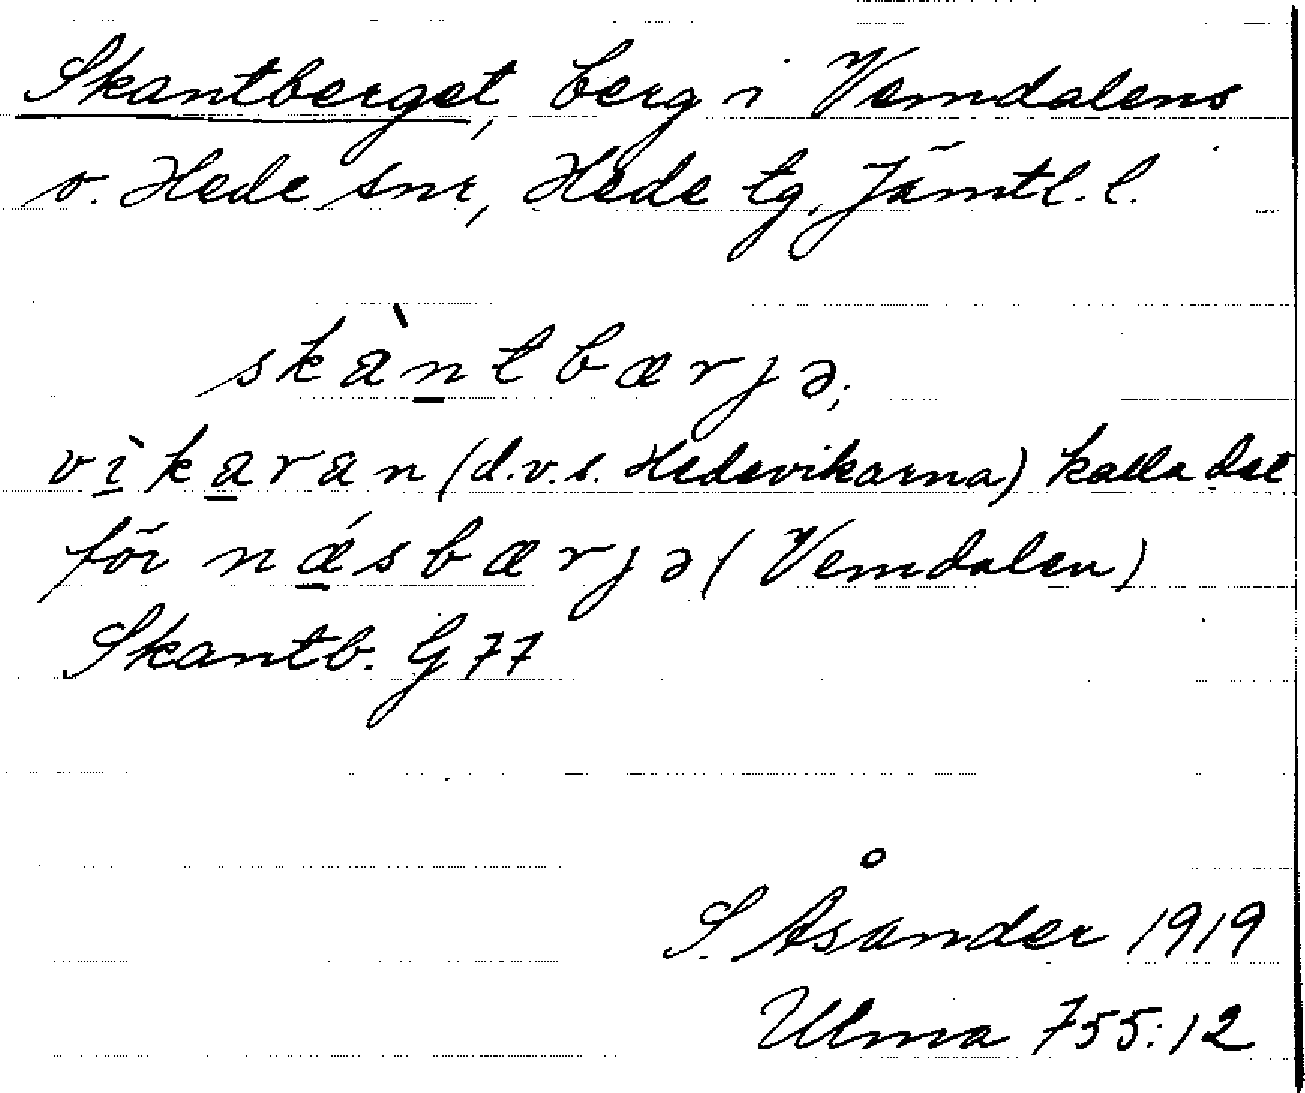 Skantberget, berg i Vemdalens
o. Hede snr, Hede tg, Jämtl. l.
skàntbærjə;
vìkaran (d.v.s. Hedevikarna) kalla det
för nǽsbærjə (Vemdalen)
Skantb. G 77
S. Åsander 1919
Ulma 755:12